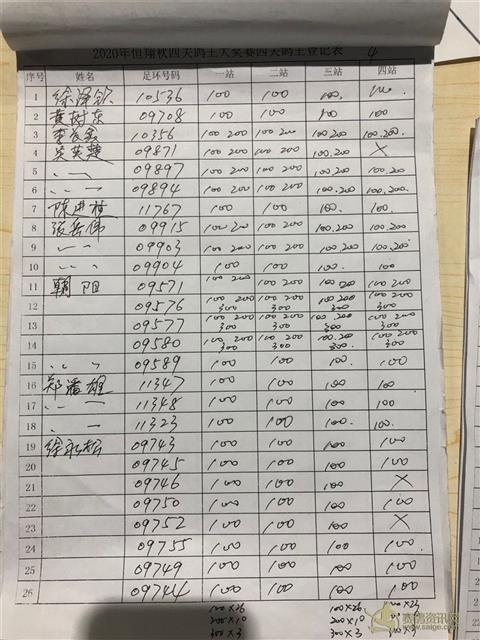 2020年恒翔秋四关鸽王大奖赛四关鸽王登记表 4
序号 姓名 足环号码 一站 二站 三站 四站
1 徐泽钦 10536 100 100 100. 100.
2 黄树东 09708 100 100 100 100
3 10356 100 200 100 200 100 200 100.200
4 吴英楚 09871 100 200 100 200 100.200 X
5 〃 〃 09897 100 200 100 200 100 200 100.200
6 〃 〃 09894 100 200 100 200 100.200 100.200.
7 陈进植 11767 100 100 100. 100.
8 张岳伟 09915 100 200 100 200 100.200 100.200
9 〃 〃 09903 100 200 100 200 100 200 100.200
10 〃 〃 09904 100 100 100. 100
11 朝阳 09571 100 200 100 200 100 200 100 200
12 09576 100 200 300 100 200 300 100 200 300
13 09577 100 200 300 100 200 300 100.200 300 100 200 300
14 09580 100 200 300 100 200 300 100 200 300. 100 200 300
15 〃 〃 09589 100 100 100. 100
16 郑潘雄 11347 100 100 100 100
17 〃 〃 11348 100 100 100 100
18 〃 〃 11323 100 100 100. 100.
19 徐永松 09743 100 100 100 100
20 09745 100 100 100 100
21 09746 100 100 100 X
22 09750 100 100 100 100
23 09752 100 100 100 X
24 09755 100 100 100 100
25 09749 100 100 100 100
26 09744 100 100 100 100
100×26 100×26 100×23
200×10 200×10
300×3 300×3 300×3
赛鸽资讯网